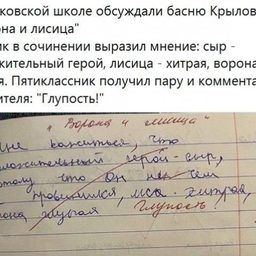 ковской школе обсуждали басню Крылов
она и лисица"
ик в сочинении выразил мнение: сыр -
жительный герой, лисица - хитрая, ворона
я. Пятиклассник получил пару и коммента
ителя: "Глупость!"
"Ворона и лисица"
не кажиться, что
ложительный герой - сыр,
тому что он не чем
провинился, лиса - хитрая,
она глупая Глупость!